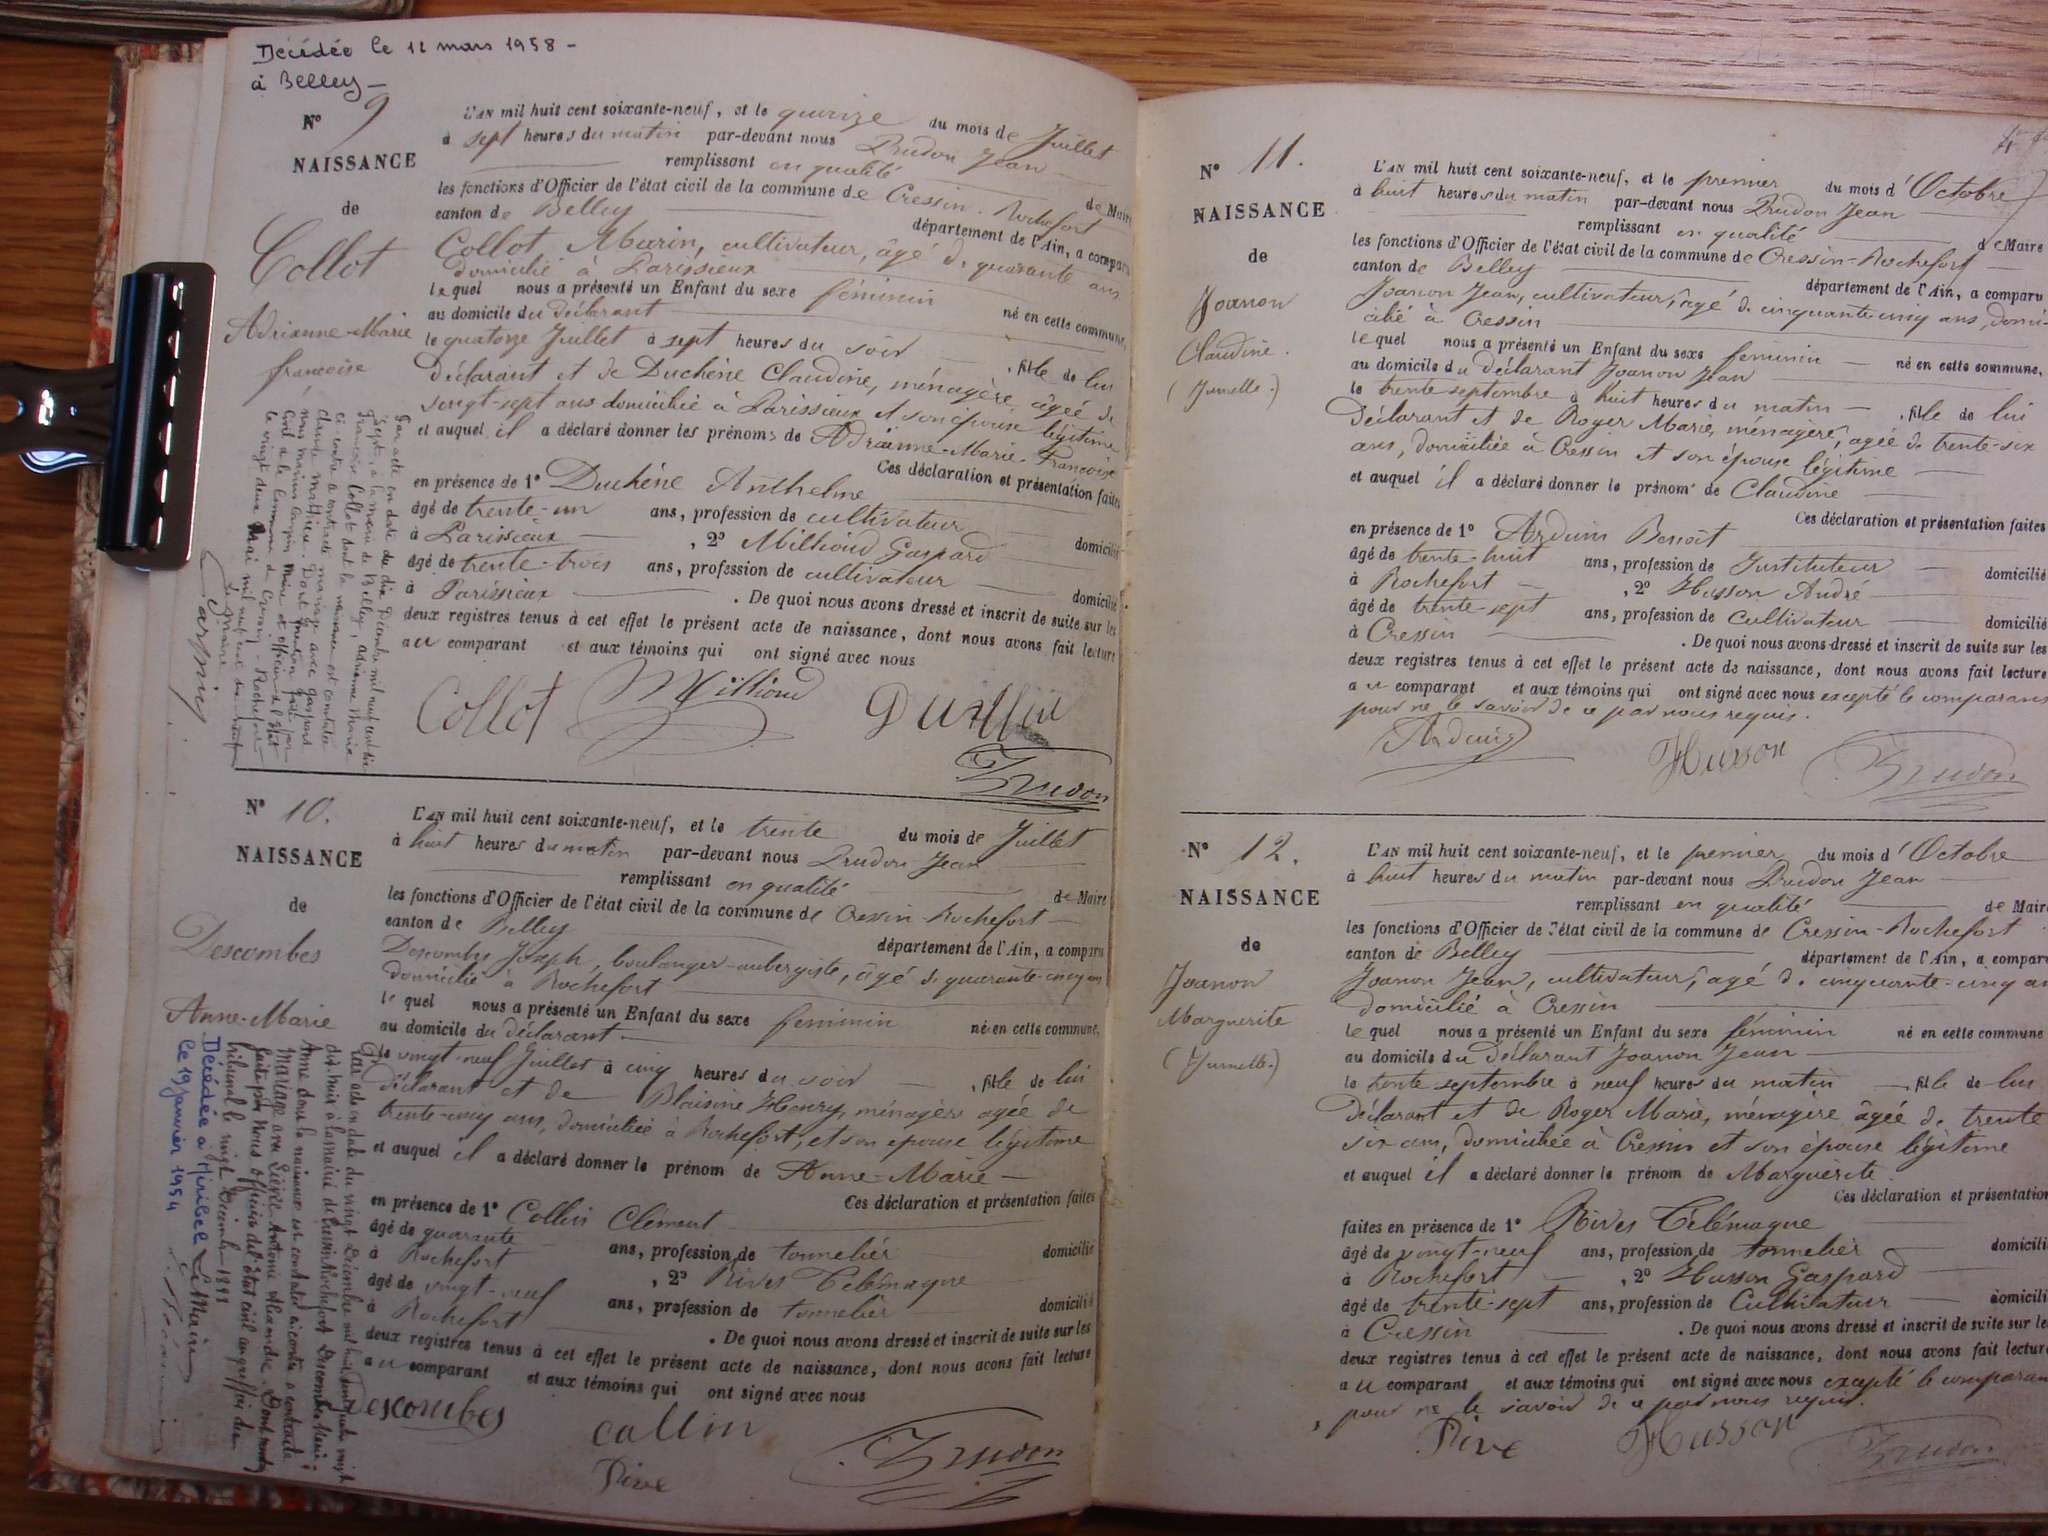 Décédée le 12 mars 1958 -
à Belley -
N° 9
NAISSANCE
de
Collot
Adrienne-Marie
françoise
L'AN mil huit cent soixante-neuf, et le quinze du mois de Juillet
à sept heures du matin par-devant nous Prudon Jean
remplissant en qualité de Maire
les fonctions d'Officier de l'état civil de la commune de Cressin-Rochefort
canton de Belley département de l'Ain, a comparu
Collot Marin, cultivateur, âgé de quarante ans
domicilié à Parissieux
lequel nous a présenté un Enfant du sexe féminin
au domicile du déclarant né en cette commune,
le quatorze Juillet à sept heures du soir, fille de lui
déclarant et de Duchêne Claudine, ménagère, âgée de
vingt-sept ans domiciliée à Parissieux et son épouse légitime
et auquel il a déclaré donner les prénoms de Adrienne-Marie-Françoise
Ces déclaration et présentation faites
en présence de 1° Duchêne Anthelme
âgé de trente-un ans, profession de cultivateur domicilié
à Parissieux, 2° Millioud Gaspard
âgé de trente-trois ans, profession de cultivateur domicilié
à Parissieux. De quoi nous avons dressé et inscrit de suite sur les
deux registres tenus à cet effet le présent acte de naissance, dont nous avons fait lecture
au comparant et aux témoins qui ont signé avec nous
Collot Millioud
Prudon
Par acte en date du dix Décembre mil neuf cent dix
Françoise Collot dont la naissance est constatée
ci contre a contracté mariage avec gaspard
N° 10.
NAISSANCE
de
Descombes
Anne-Marie
L'AN mil huit cent soixante-neuf, et le trente du mois de Juillet
à huit heures du matin par-devant nous Prudon Jean
remplissant en qualité de Maire
les fonctions d'Officier de l'état civil de la commune de Cressin-Rochefort
canton de Belley département de l'Ain, a comparu
Descombes Joseph, boulanger-aubergiste, âgé de quarante-cinq ans
domicilié à Rochefort
lequel nous a présenté un Enfant du sexe féminin
au domicile du déclarant né en cette commune,
le vingt-neuf Juillet à cinq heures du soir, fille de lui
déclarant et de Blaisine Henry, ménagère agée de
trente-cinq ans, domiciliée à Rochefort, et son épouse légitime
et auquel il a déclaré donner le prénom de Anne-Marie
Ces déclaration et présentation faites
en présence de 1° Collin Clément
âgé de quarante ans, profession de tonnelier domicilié
à Rochefort, 2° Rives Télémaque
âgé de vingt-neuf ans, profession de tonnelier domicilié
à Rochefort. De quoi nous avons dressé et inscrit de suite sur les
deux registres tenus à cet effet le présent acte de naissance, dont nous avons fait lecture
au comparant et aux témoins qui ont signé avec nous
Descombes Collin
Rive Prudon
Par acte en date du vingt Décembre mil huit cent quatre vingt
dix huit à la Mairie de Cressin Rochefort Descombes Marie-
Anne dont la naissance est constatée ci contre a contracté
Mariage avec Lièvre Antoine Alexandre. Dont mention
faite par Nous officier de l'état civil au greffier du
tribunal le vingt Décembre 1898
Le Maire
Décédée à Miribel
le 19 janvier 1954
N° 11.
NAISSANCE
de
Joanon
Claudine.
(Jumelle.)
L'AN mil huit cent soixante-neuf, et le premier du mois d'Octobre
à huit heures du matin par-devant nous Prudon Jean
remplissant en qualité de Maire
les fonctions d'Officier de l'état civil de la commune de Cressin-Rochefort
canton de Belley département de l'Ain, a comparu
Joanon Jean, cultivateur, âgé de cinquante-cinq ans, domi-
cilié à Cressin
lequel nous a présenté un Enfant du sexe féminin
au domicile du déclarant Joanon Jean né en cette commune,
le trente septembre à huit heures du matin, fille de lui
Déclarant et de Roger Marie, ménagère, agée de trente-six
ans, domiciliée à Cressin et son épouse légitime
et auquel il a déclaré donner le prénom de Claudine
Ces déclaration et présentation faites
en présence de 1° Arduin Benoît
âgé de trente-huit ans, profession de Instituteur domicilié
à Rochefort, 2° Husson André
âgé de trente-sept ans, profession de cultivateur domicilié
à Cressin. De quoi nous avons dressé et inscrit de suite sur les
deux registres tenus à cet effet le présent acte de naissance, dont nous avons fait lecture
au comparant et aux témoins qui ont signé avec nous excepté le comparant
pour ne le savoir de ce par nous requis.
Arduin Husson Prudon
N° 12.
NAISSANCE
de
Joanon
Marguerite
(Jumelle.)
L'AN mil huit cent soixante-neuf, et le premier du mois d'Octobre
à huit heures du matin par-devant nous Prudon Jean
remplissant en qualité de Maire
les fonctions d'Officier de l'état civil de la commune de Cressin-Rochefort
canton de Belley département de l'Ain, a comparu
Joanon Jean, cultivateur, agé de cinquante-cinq ans
domicilié à Cressin
lequel nous a présenté un Enfant du sexe féminin né en cette commune
au domicile du déclarant Joanon Jean
le trente septembre à neuf heures du matin, fille de lui
Déclarant et de Roger Marie, ménagère âgée de trente
six ans, domiciliée à Cressin et son épouse légitime
et auquel il a déclaré donner le prénom de Marguerite
Ces déclaration et présentation
faites en présence de 1° Rives Télémaque
âgé de vingt-neuf ans, profession de tonnelier domicilié
à Rochefort, 2° Husson Gaspard
âgé de trente-sept ans, profession de Cultivateur domicilié
à Cressin. De quoi nous avons dressé et inscrit de suite sur les
deux registres tenus à cet effet le présent acte de naissance, dont nous avons fait lecture
au comparant et aux témoins qui ont signé avec nous excepté le comparant
pour ne le savoir de ce par nous requis.
Rive Husson Prudon